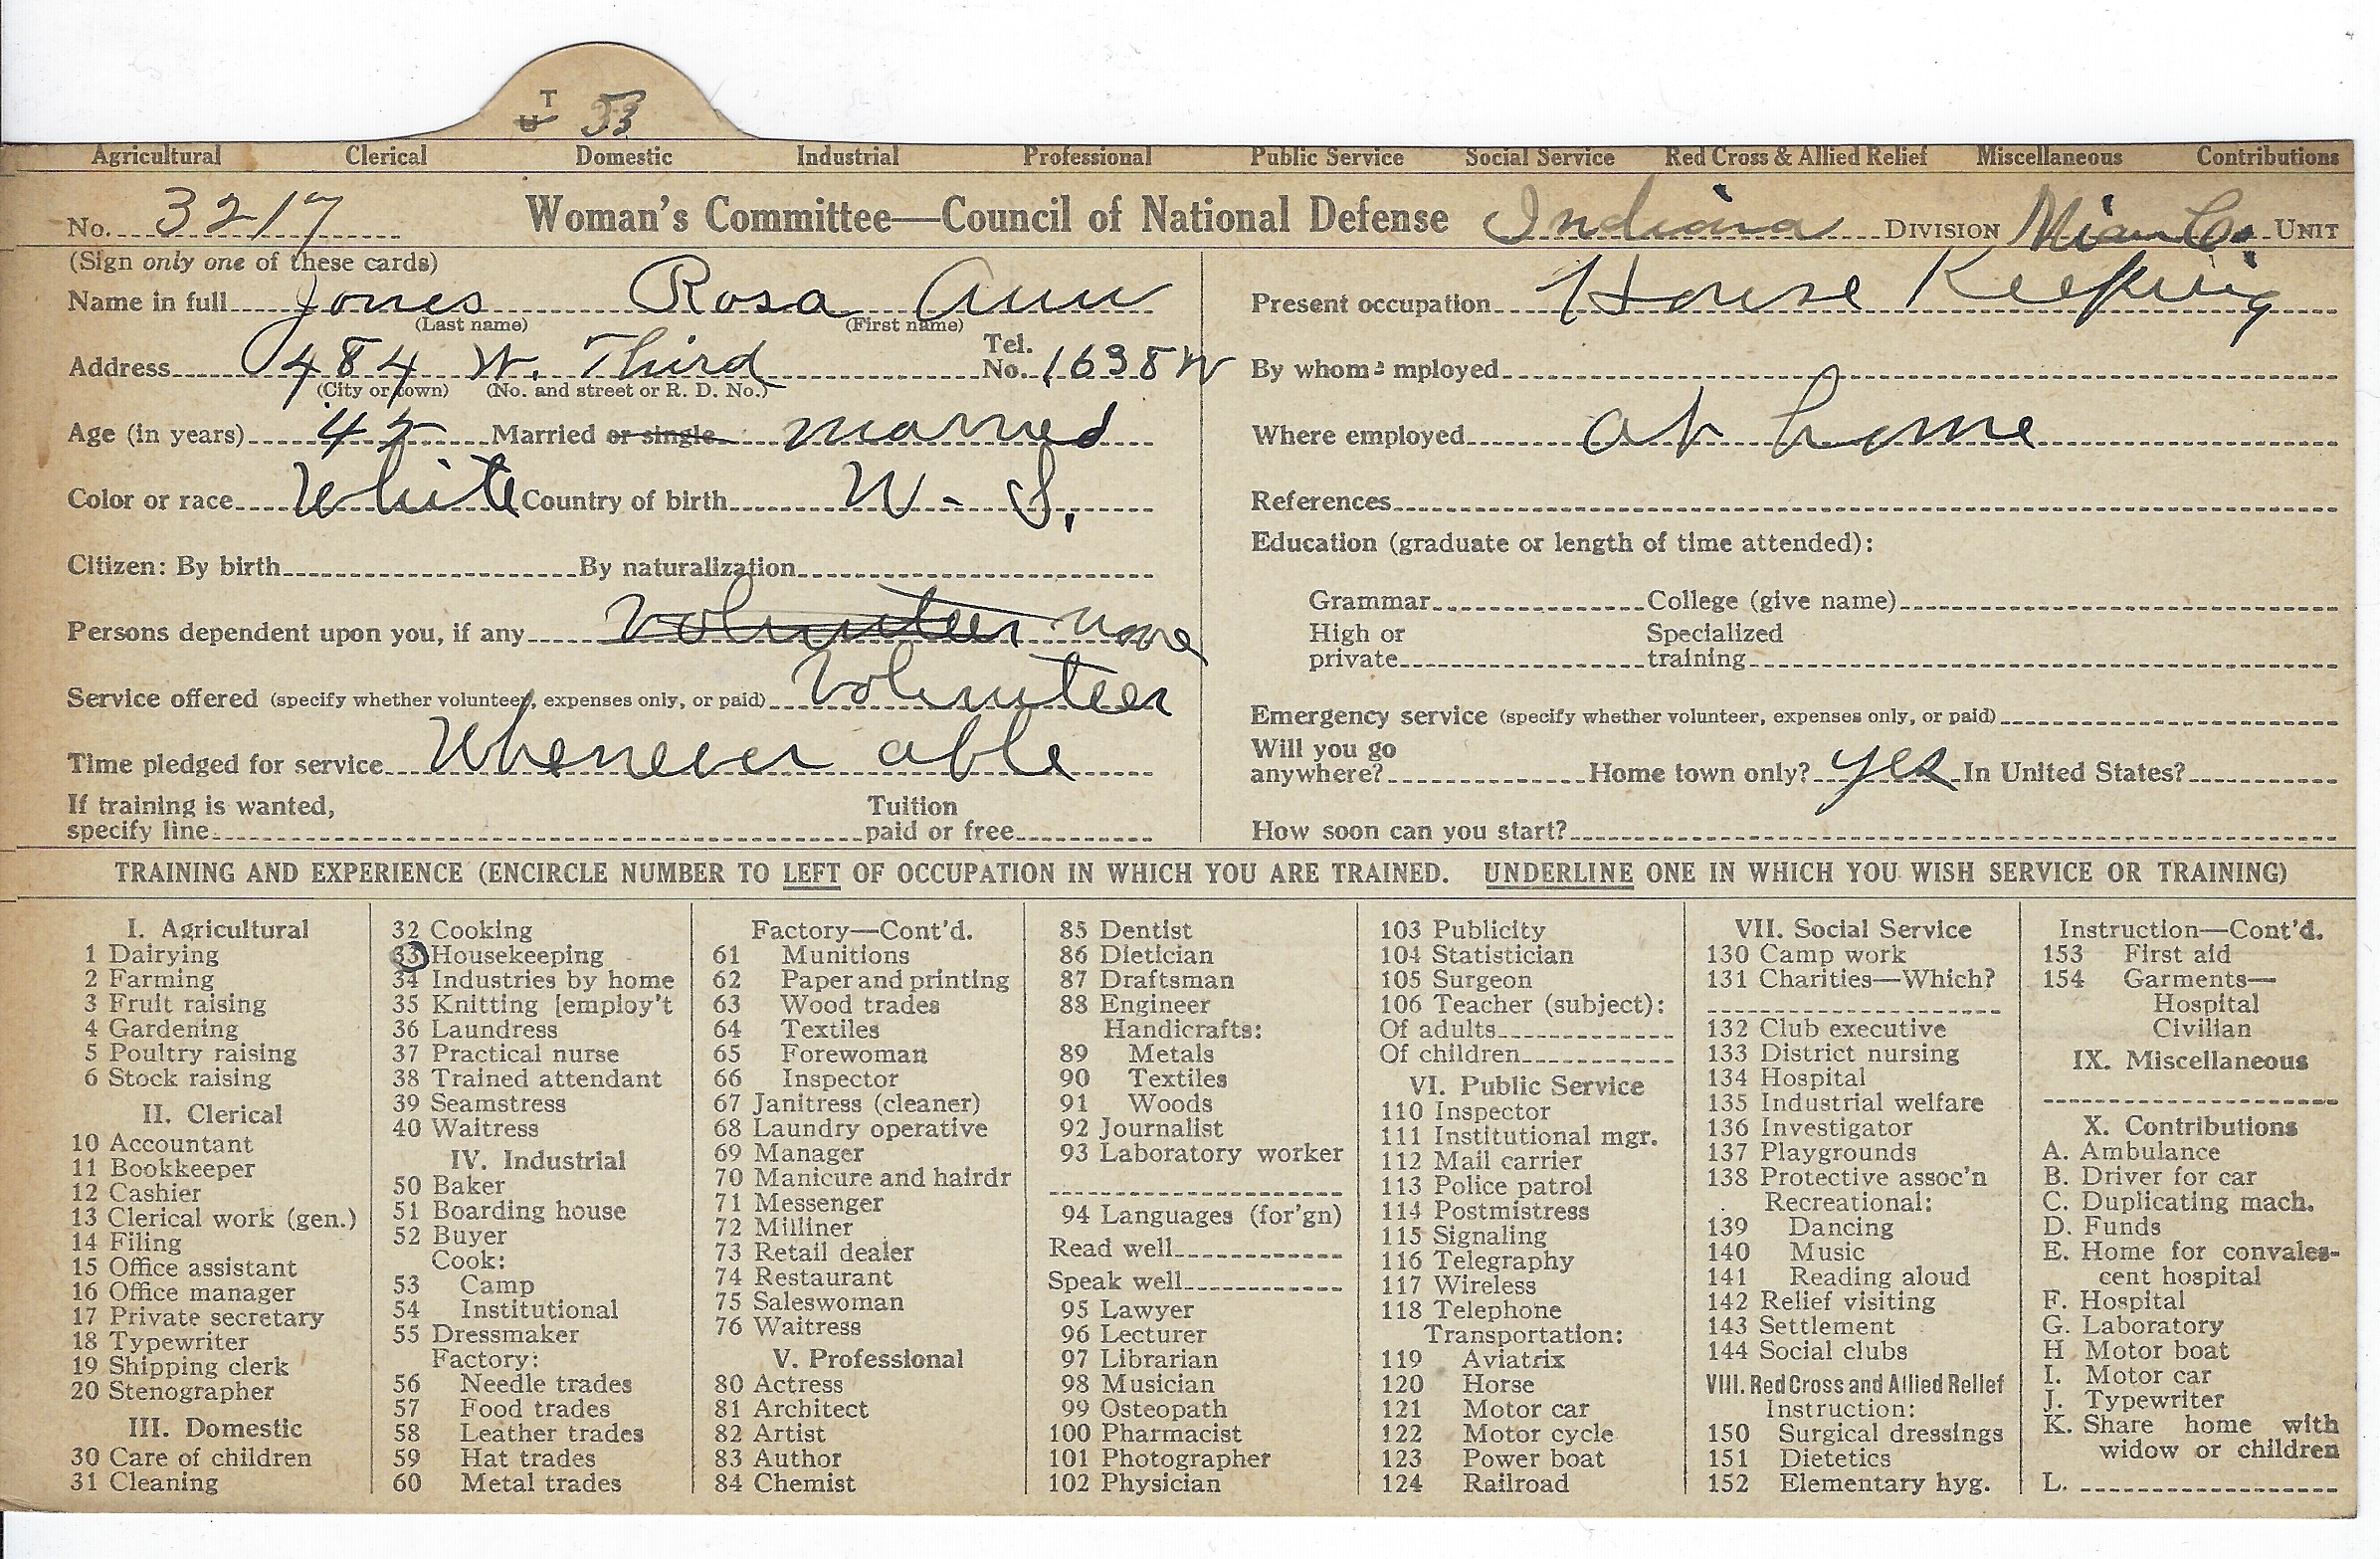 T
U 33
Agricultural Clerical Domestic Industrial Professional Public Service Social Service Red Cross & Allied Relief Miscellaneous Contributions
No. 3217 Woman's Committee—Council of National Defense Indiana DIVISION Miami Co. UNIT
(Sign only one of these cards)
Name in full Jones Rosa Ann
(Last name) (First name)
Address 484 W. Third Tel. No. 1638W
(City or town) (No. and street or R. D. No.)
Age (in years) 45 Married or single married
Color or race White Country of birth U. S.
Citizen: By birth By naturalization
Persons dependent upon you, if any Volunteer none
Service offered (specify whether volunteer, expenses only, or paid) Volunteer
Time pledged for service Whenever able
If training is wanted,
specify line Tuition paid or free
Present occupation House Keeping
By whom employed
Where employed at home
References
Education (graduate or length of time attended):
Grammar College (give name)
High or private Specialized training
Emergency service (specify whether volunteer, expenses only, or paid)
Will you go anywhere? Home town only? yes In United States?
How soon can you start?
TRAINING AND EXPERIENCE (ENCIRCLE NUMBER TO LEFT OF OCCUPATION IN WHICH YOU ARE TRAINED. UNDERLINE ONE IN WHICH YOU WISH SERVICE OR TRAINING)
I. Agricultural
1 Dairying
2 Farming
3 Fruit raising
4 Gardening
5 Poultry raising
6 Stock raising
II. Clerical
10 Accountant
11 Bookkeeper
12 Cashier
13 Clerical work (gen.)
14 Filing
15 Office assistant
16 Office manager
17 Private secretary
18 Typewriter
19 Shipping clerk
20 Stenographer
III. Domestic
30 Care of children
31 Cleaning
32 Cooking
33 Housekeeping
34 Industries by home
35 Knitting [employ't
36 Laundress
37 Practical nurse
38 Trained attendant
39 Seamstress
40 Waitress
IV. Industrial
50 Baker
51 Boarding house
52 Buyer
Cook:
53 Camp
54 Institutional
55 Dressmaker
Factory:
56 Needle trades
57 Food trades
58 Leather trades
59 Hat trades
60 Metal trades
Factory—Cont'd.
61 Munitions
62 Paper and printing
63 Wood trades
64 Textiles
65 Forewoman
66 Inspector
67 Janitress (cleaner)
68 Laundry operative
69 Manager
70 Manicure and hairdr
71 Messenger
72 Milliner
73 Retail dealer
74 Restaurant
75 Saleswoman
76 Waitress
V. Professional
80 Actress
81 Architect
82 Artist
83 Author
84 Chemist
85 Dentist
86 Dietician
87 Draftsman
88 Engineer
Handicrafts:
89 Metals
90 Textiles
91 Woods
92 Journalist
93 Laboratory worker
94 Languages (for'gn)
Read well
Speak well
95 Lawyer
96 Lecturer
97 Librarian
98 Musician
99 Osteopath
100 Pharmacist
101 Photographer
102 Physician
103 Publicity
104 Statistician
105 Surgeon
106 Teacher (subject):
Of adults
Of children
VI. Public Service
110 Inspector
111 Institutional mgr.
112 Mail carrier
113 Police patrol
114 Postmistress
115 Signaling
116 Telegraphy
117 Wireless
118 Telephone
Transportation:
119 Aviatrix
120 Horse
121 Motor car
122 Motor cycle
123 Power boat
124 Railroad
VII. Social Service
130 Camp work
131 Charities—Which?
132 Club executive
133 District nursing
134 Hospital
135 Industrial welfare
136 Investigator
137 Playgrounds
138 Protective assoc'n
Recreational:
139 Dancing
140 Music
141 Reading aloud
142 Relief visiting
143 Settlement
144 Social clubs
VIII. Red Cross and Allied Relief
Instruction:
150 Surgical dressings
151 Dietetics
152 Elementary hyg.
Instruction—Cont'd.
153 First aid
154 Garments—
Hospital
Civilian
IX. Miscellaneous
X. Contributions
A. Ambulance
B. Driver for car
C. Duplicating mach.
D. Funds
E. Home for convales-
cent hospital
F. Hospital
G. Laboratory
H Motor boat
I. Motor car
J. Typewriter
K. Share home with
widow or children
L.